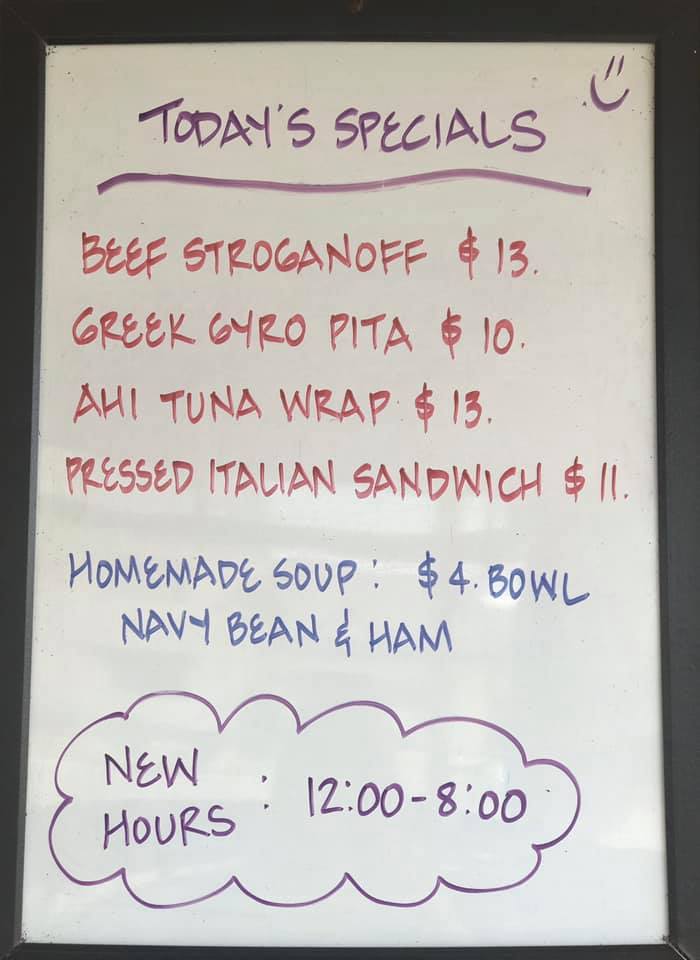 TODAY'S SPECIALS
BEEF STROGANOFF $ 13.
GREEK GYRO PITA $ 10.
AHI TUNA WRAP $ 13.
PRESSED ITALIAN SANDWICH $ 11.
HOMEMADE SOUP: $4. BOWL
NAVY BEAN & HAM
NEW
HOURS : 12:00-8:00